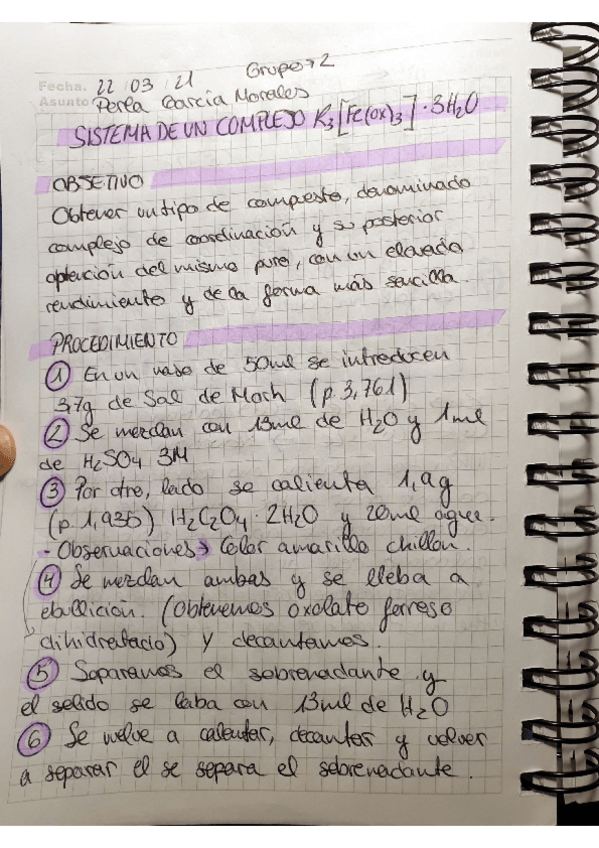 Grupo 2
Fecha. 22 03 21
Asunto Perla García Morales
SISTEMA DE UN COMPLEJO K₃[Fe(ox)₃]·3H₂O
OBJETIVO
Obtener un tipo de compuesto, denominado
complejo de coordinación y su posterior
optención del mismo puro, con un elevado
rendimiento y de la forma más sencilla.
PROCEDIMIENTO
① En un vaso de 50ml se introducen
3,7g de Sal de Mosh (p. 3,761)
② Se mezclan con 13ml de H₂O y 1ml
de H₂SO₄ 3M
③ Por otro, lado se calienta 1,9g
(p. 1,935) H₂C₂O₄·2H₂O y 20ml agua.
- Observaciones → Color amarillo chillón.
④ Se mezclan ambas y se lleba a
ebullición. (Obtenemos oxolato ferroso
dihidratado) y decantamos.
⑤ Separamos el sobrenadante y
el solido se laba con 13ml de H₂O
⑥ Se vuelve a calentar, decantar y volver
a separar el se separa el sobrenadante.